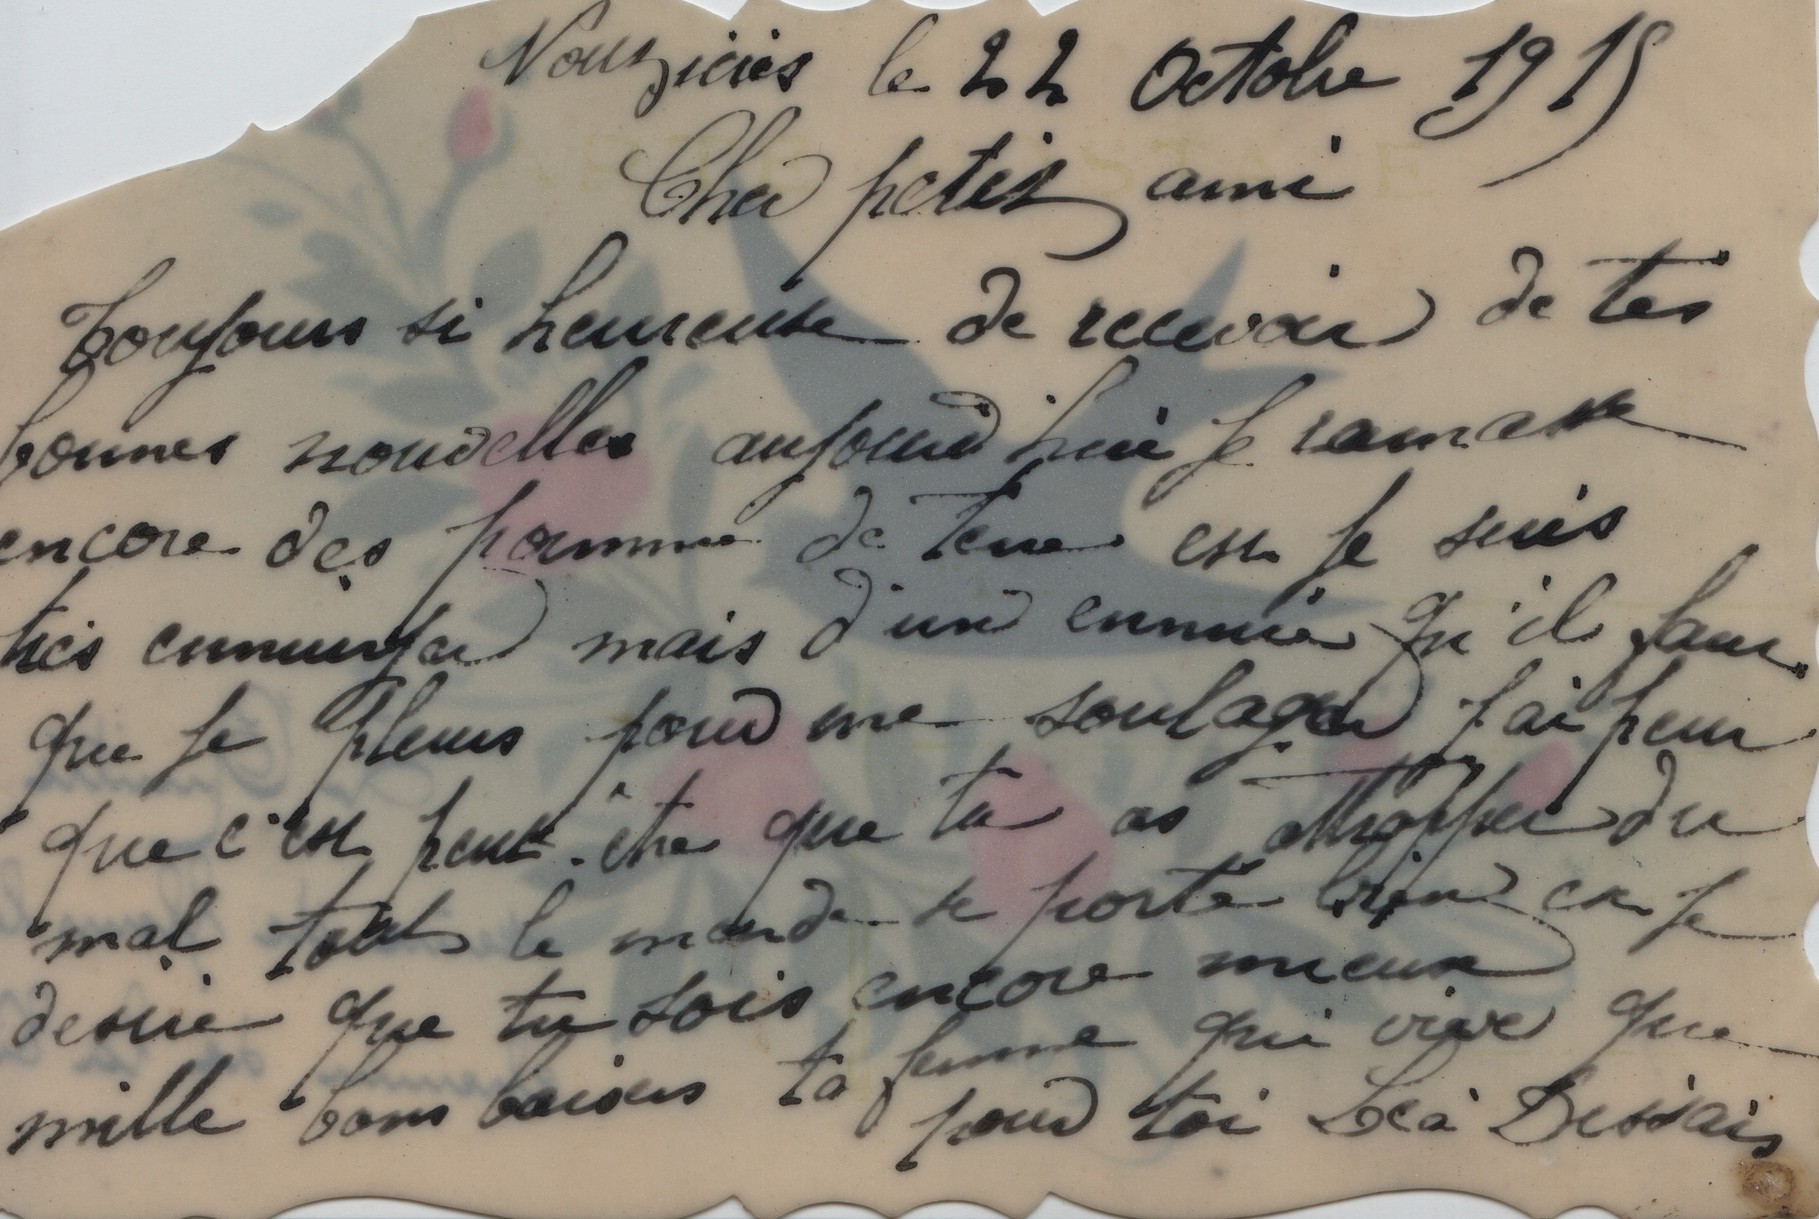 le 22 Octobre 1915
Cher petit ami
Toujours si heureuse de recevoir de tes
bonnes nouvelles aujourd'hui je ramasse
encore des pomme de terre est je suis
très ennuiyer mais d'un ennuie qu'il faut
que je pleurs pour me soulager j'ai peur
que c'est peut-être que tu as attrapper du
mal tout le monde se porte bien est je
desire que tu sois encore mieux
mille bons baisers ta femme qui vive que
pour toi Léa Dessais